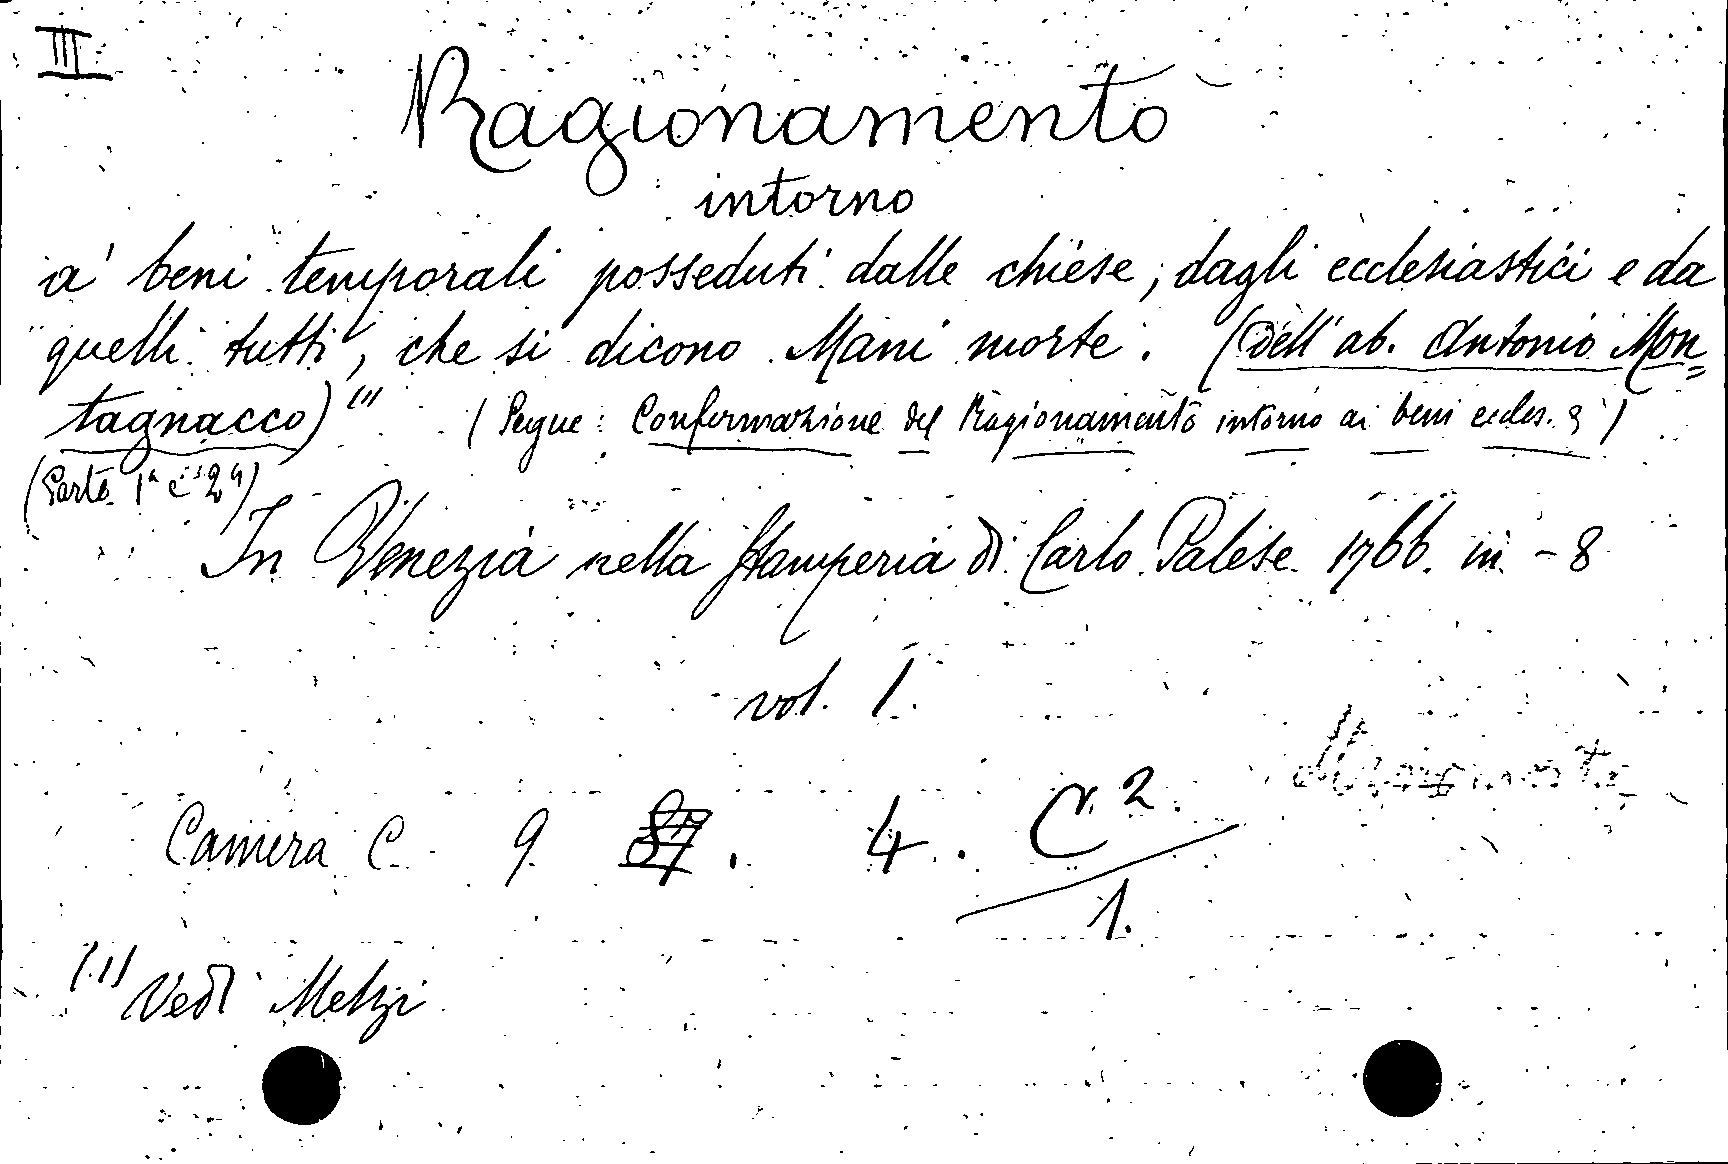 III
Ragionamento
intorno
a' beni temporali posseduti dalle chiese, dagli ecclesiastici e da
quelli tutti, che si dicono Mani morte. (Dell' ab. Antonio Mon=
tagnacco) (1) (Segue: Confermazione del Ragionamento intorno ai beni eccles. &)
(Parte 1ª e 2ª)
In Venezia nella Stamperia di Carlo Palese 1766. in - 8
vol. 1.
Manomorta
Camera C 9 87. 4. C r. 2
1.
(1) Vedi Melzi